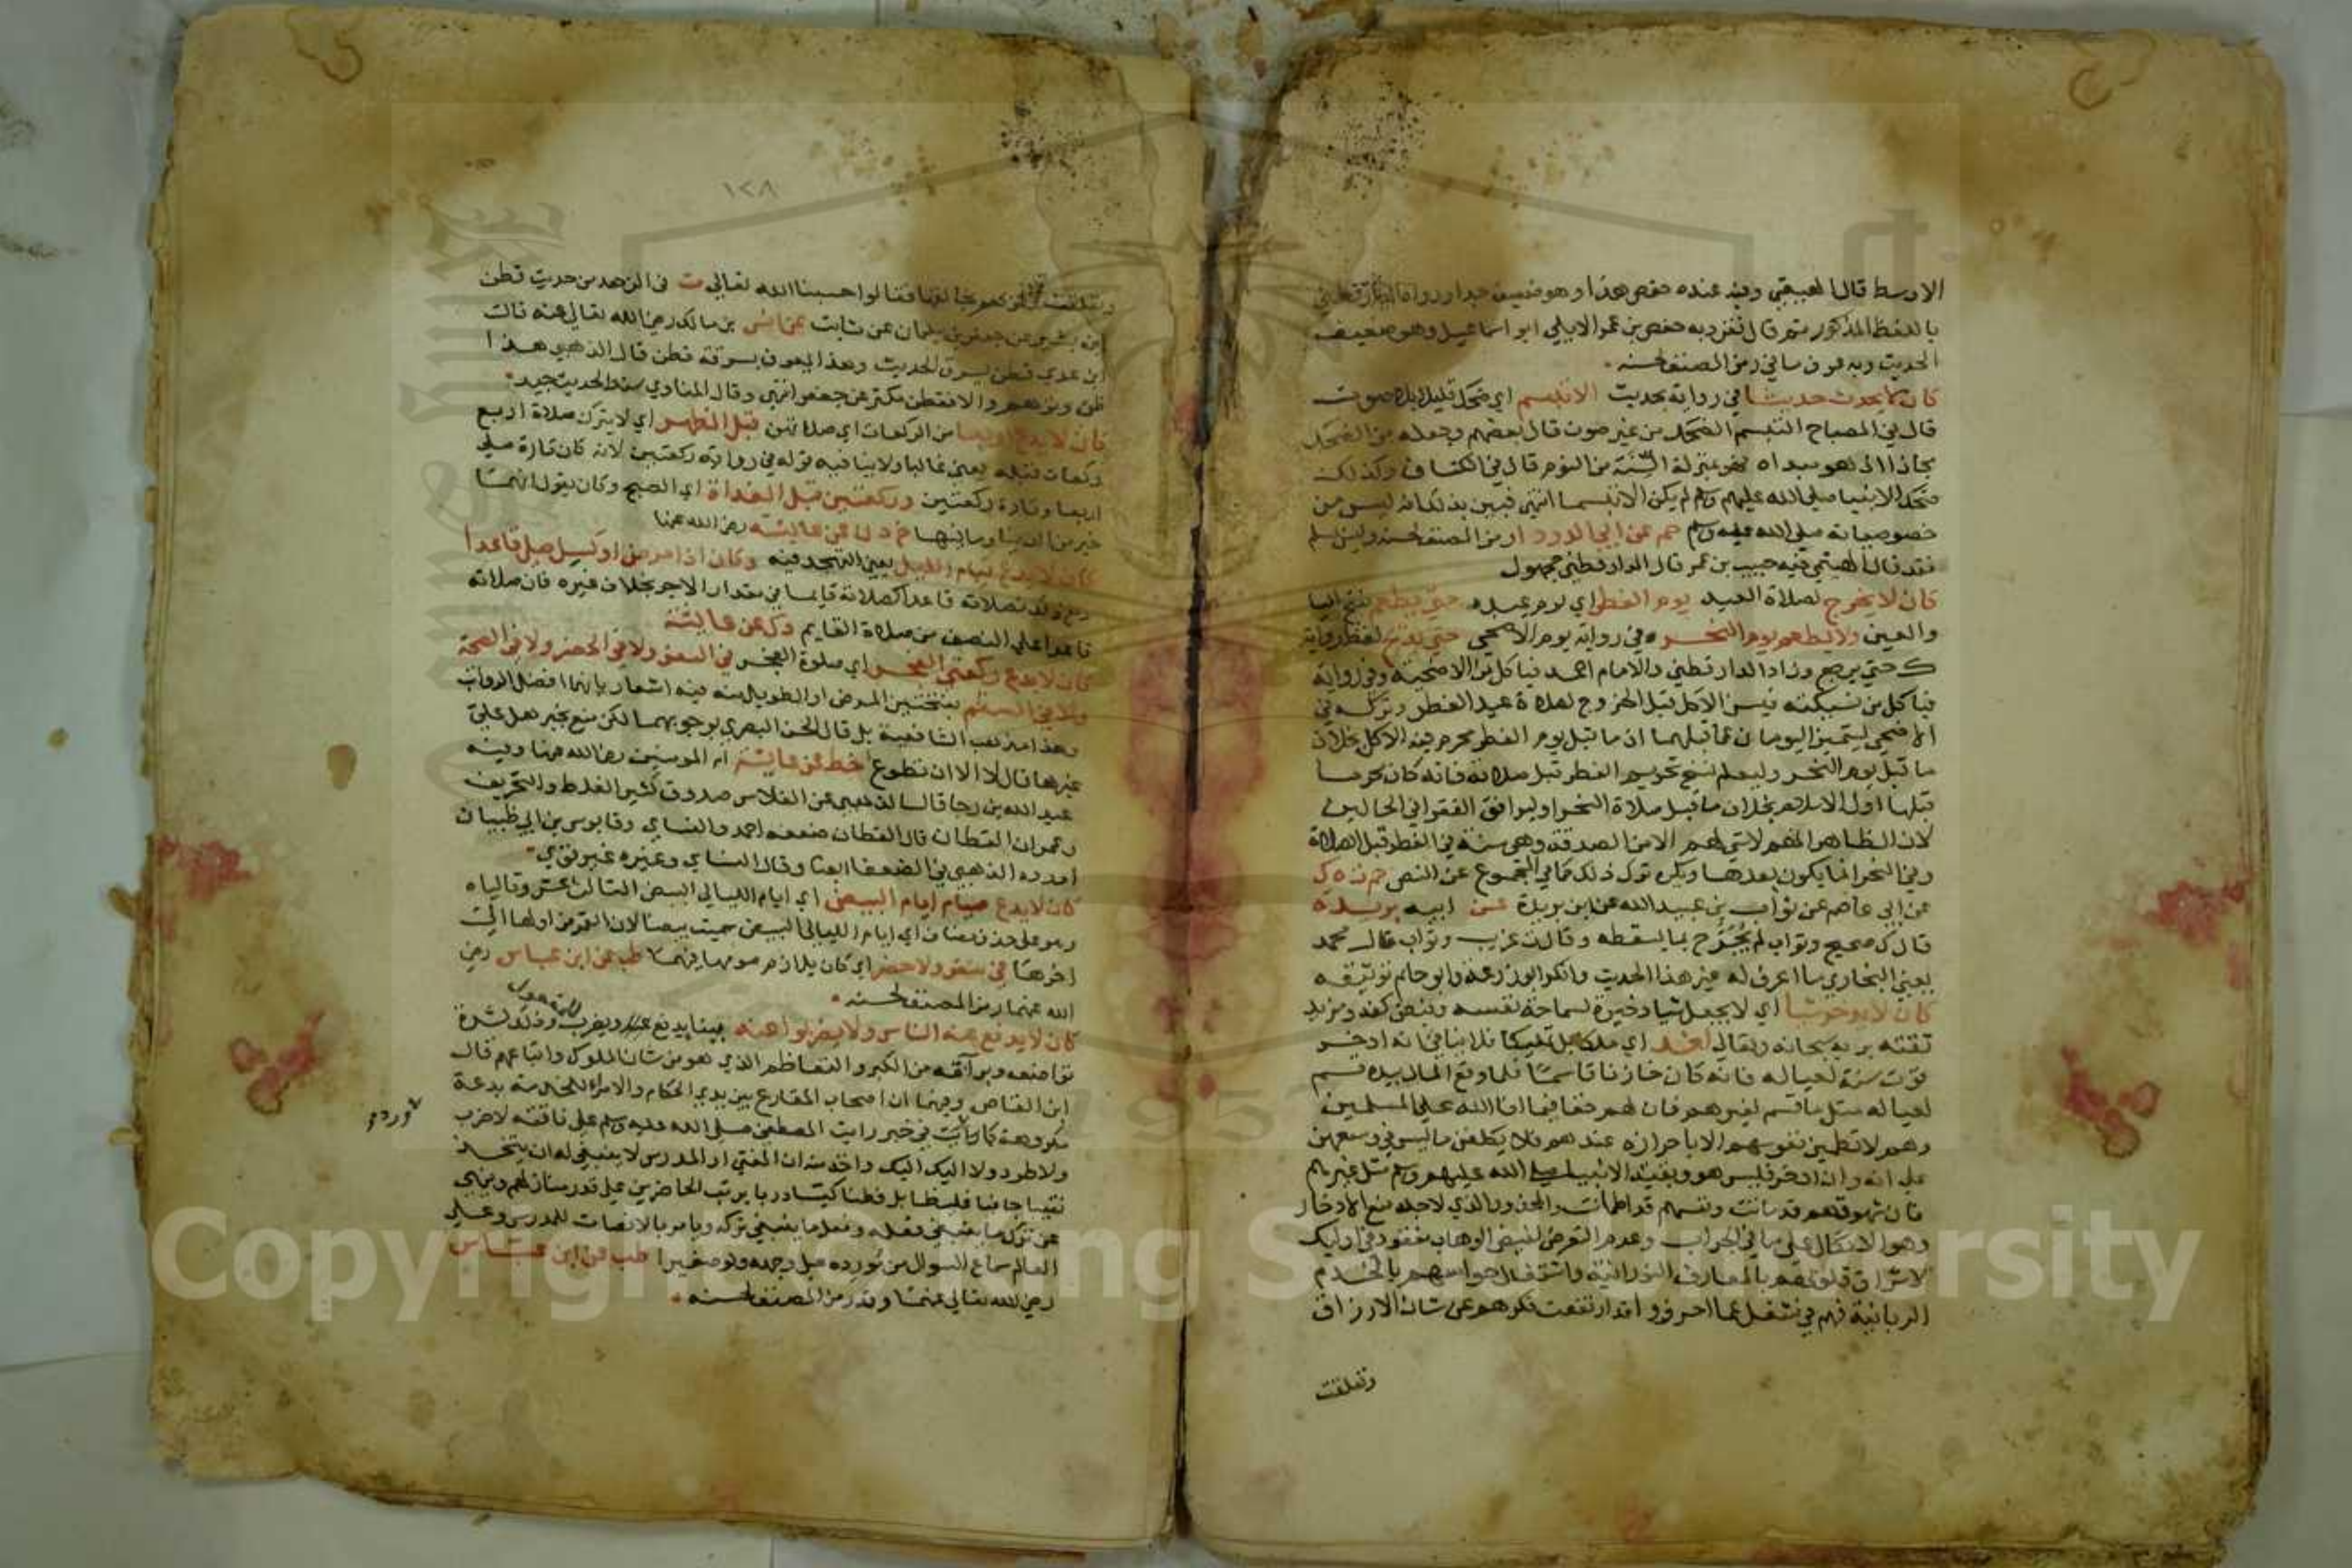 الاوسط قال البيهقي وفيه عنده حفص هذا وهو ضعيف جدا ورواه الدارقطني
باللفظ المذكور ثم قال تفرد به حفص بن عمر الايلي ابو اسماعيل وهو ضعيف
الحديث وبه عرف ما في رمز المصنف لحسنه
كان لا يحدث حديثا في رواية بحديث الا تبسم اي ضحك قليلا بلا صوت
قال في المصباح التبسم الضحك من غير صوت قال بعضهم وجعله من الضحك
مجاز اذ هو مبداه فهو بمنزلة السنة من النوم قال في الكشاف وكذلك
ضحك الانبيا صلى الله عليهم وسلم لم يكن الا تبسما انتهى فبين بذلك انه ليس من
خصوصياته صلى الله عليه وسلم حم عن ابي الدرداء رمز المصنف لحسنه وليس بمسلم
فقد قال الهيتمي فيه حبيب بن عمر قال الدارقطني مجهول
كان لا يخرج لصلاة العيد يوم الفطر اي يوم عيده حتى يطعم بفتح اليا
والعين ولا يطعم يوم النحر وفي رواية يوم الاضحى حتى يذبح لفظ رواية
ك حتى يرجع وزاد الدارقطني والامام احمد فياكل من الاضحية وفي رواية
فياكل من نسيكته فيسن الاكل قبل الخروج لصلاة عيد الفطر وتركه في
الاضحى ليتميز اليومان عما قبلهما اذ ما قبل يوم الفطر يحرم فيه الاكل بخلاف
ما قبل يوم النحر وليعلم نسخ تحريم الفطر قبل صلاته فانه كان محرما
قبلها اول الاسلام بخلاف ما قبل صلاة النحر اوليوافق الفقرا في الحالين
لان الظاهر انهم لا شي لهم الا من الصدقة وهي سنة في الفطر قبل الصلاة
وفي النحر انما يكون بعدها ويكره ترك ذلك كما في المجموع عن النص حم ت ه ك
عن ابي عاصم عن ثواب بن عبيد الله عن ابن بريدة عن ابيه بريدة
قال ك صحيح وثواب لم يجرح بما يسقطه وقال ت غريب وثواب قال محمد
يعني البخاري ما اعرف له غير هذا الحديث وانكر ابو زرعة وابو حاتم توثيقه
كان لا يدخر شيا اي لا يجعل شيا ذخيرة لسماحة نفسه وفيض كفه ومزيد
ثقته بربه سبحانه وتعالى لغد اي ملكا بل تمليكا فلا ينافي انه ادخر
قوت سنة لعياله فانه كان خازنا قاسما فلما وقع المال بيده قسم
لعياله مثل ما قسم لغيرهم فان لهم حقا فيما افا الله على المسلمين
وهم لا تطمين نفوسهم الا باحرازه عندهم فلا يكلفن ما ليس في وسعهن
على انه وان ادخر فليس هو وبقية الانبيا صلى الله عليهم وسلم مثل غيرهم
فان شهوتهم قد ماتت ونفسهم قد اطمانت والمحذور الذي لاجله منع الادخار
وهو الاتكال على ما في الجراب وعدم التعرض لفيض الوهاب مفقود في اوليك
لاشراق قلوبهم بالمعارف النورانية واشتغال حواسهم بالخدم
الربانية فهم في شغل عما احرزوا قد ارتفعت فكرهم عن شان الارزاق
وتعلقت
١٢٨
وتعلقت بمن هو مجازيها فقالوا حسبنا الله تعالى ت في الزهد من حديث قطن
ابن بشير عن جعفر بن سليمان عن ثابت عن انس بن مالك رضي الله تعالى عنه قالت
ابن عدي قطن يسرق الحديث وهذا يعرف بسرقة قطن قال الذهبي هذا
ظن وتوهم والا فقطن مكثر عن جعفر انتهى وقال المناوي سند الحديث جيد
كان لا يدع اربعا من الركعات اي صلاتهن قبل الظهر اي لا يترك صلاة اربع
ركعات قبله يعني غالبا ولا ينافيه قوله في رواية ركعتين لانه كان تارة يصلي
اربعا وتارة ركعتين وركعتين قبل الغداة اي الصبح وكان يقول انهما
خير من الدنيا وما فيها خ د ن عن عايشة رضي الله عنها
كان لا يدع قيام الليل يعني التهجد فيه وكان اذا مرض او كسل صلى قاعدا
ومع ذلك فصلاته قاعدا كصلاته قايما في مقدار الاجر بخلاف غيره فان صلاته
قاعدا على النصف من صلاة القايم د ك عن عايشة
كان لا يدع ركعتي الفجر اي صلوة الفجر في السفر ولا في الحضر ولا في الصحة
ولا في السقم بفتحتين المرض او الطويل منه فيه اشعار بانهما افضل الرواتب
وهذا مذهب الشافعية بل قال الحسن البصري بوجوبهما لكن منع بخبر هل علي
غيرها قال لا الا ان تطوع خط عن عايشة ام المومنين رضي الله عنها وفيه
عبد الله بن رجا قال الذهبي عن الفلاس صدوق كثير الغلط والتحريف
وعمران القطان قال القطان ضعفه احمد والنساي وقابوس بن ابي ظبيان
اورده الذهبي في الضعفا ايضا وقال النساي وغيره غير قوي
كان لا يدع صيام ايام البيض اي ايام الليالي البيض الثالث عشر وتالياه
وهو على حذف مضاف اي ايام الليالي البيض سميت بيضا لان القمر من اولها الى
اخرها في سفر ولا حضر اي كان يلازم صومها فيهما طب عن ابن عباس رضي
الله عنهما رمز المصنف لحسنه
كان لا يدفع عنه الناس ولا يضربوا عنه ببنا يدفع ويضرب للمفعول وذلك لشدة
تواضعه وبراته من الكبر والتعاظم الذي هو من شان الملوك واتباعهم قال
ابن القاص وفيه ان اصحاب المقارع بين يدي الحكام والامرا محدثة بدعة
مكروهة كما ثبت في خبر رايت المصطفى صلى الله عليه وسلم على ناقته لا ضرب
ورد
ولا طرد ولا اليك اليك واخذ منه ان المفتي او المدرس لا ينبغي له ان يتخذ
نقيبا جافيا غليظا بل فطنا كيسا دربا يرتب الحاضرين على قدر منازلهم وينهى
عن ترك ما ينبغي فعله وفعل ما ينبغي تركه ويامر بالانصات للدرس وعلى
العالم سماع السوال من مورده على وجهه ولو صغيرا طب عن ابن عباس
رضي الله تعالى عنهما وقد رمز المصنف لحسنه
Copyright © King S rsity
195